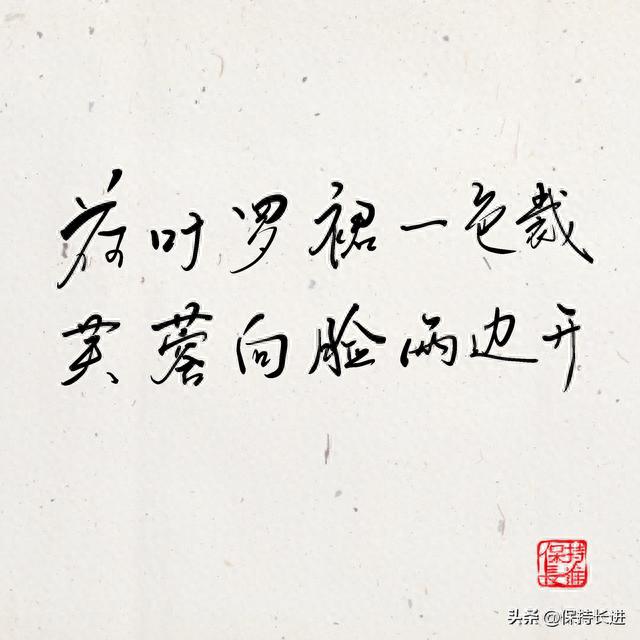 荷叶罗裙一色裁
芙蓉向脸两边开
保持
长进
头条 @保持长进